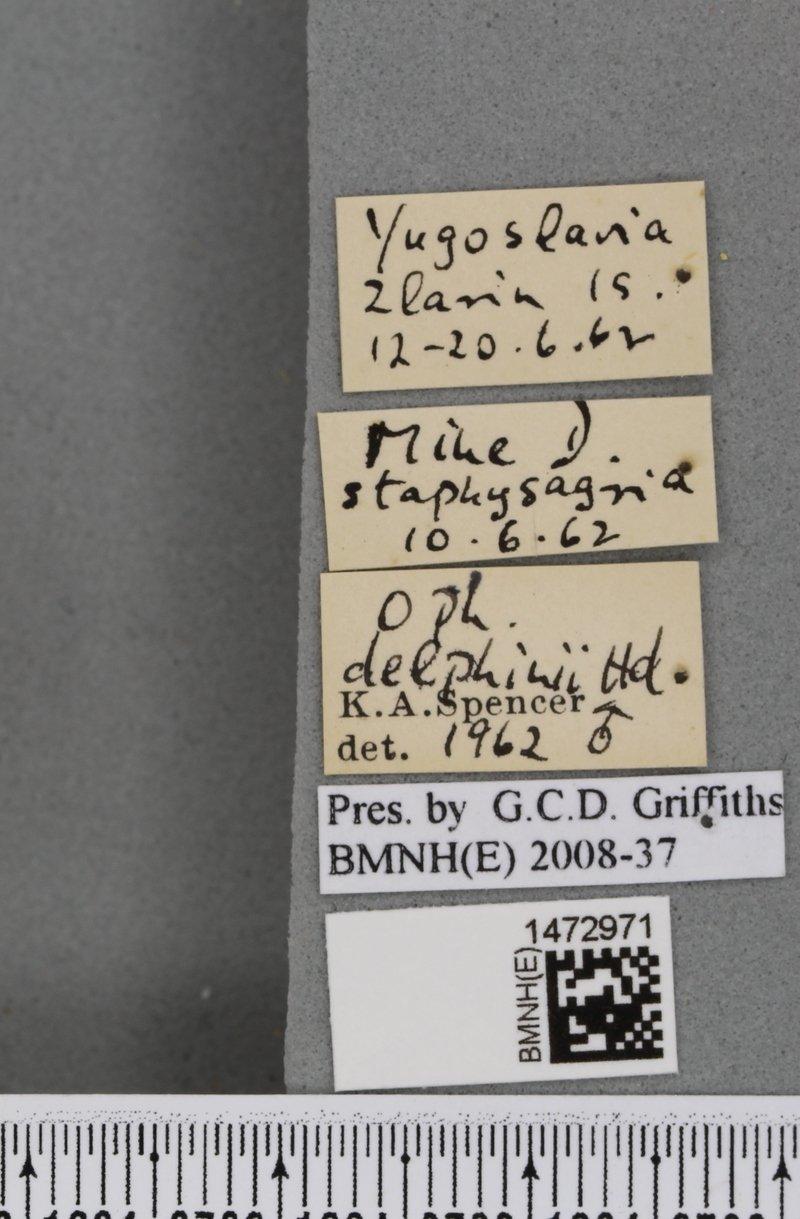 Yugoslavia
Zlarin Is.
12-20.6.62
Mine D.
staphysagria
10.6.62
Oph.
delphinii Hd.
K.A.Spencer
det. 1962 ♂
Pres. by G.C.D. Griffiths
BMNH(E) 2008-37
1472971
BMNH(E)